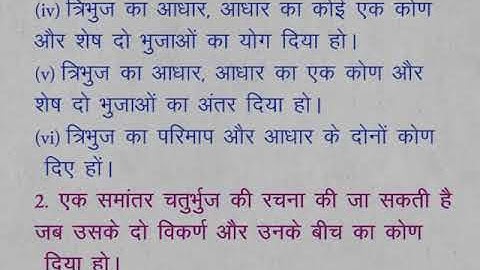 (iv) त्रिभुज का आधार, आधार का कोई एक कोण
और शेष दो भुजाओं का योग दिया हो।
(v) त्रिभुज का आधार, आधार का एक कोण और
शेष दो भुजाओं का अंतर दिया हो।
(vi) त्रिभुज का परिमाप और आधार के दोनों कोण
दिए हों।
2. एक समांतर चतुर्भुज की रचना की जा सकती है
जब उसके दो विकर्ण और उनके बीच का कोण
दिया हो।